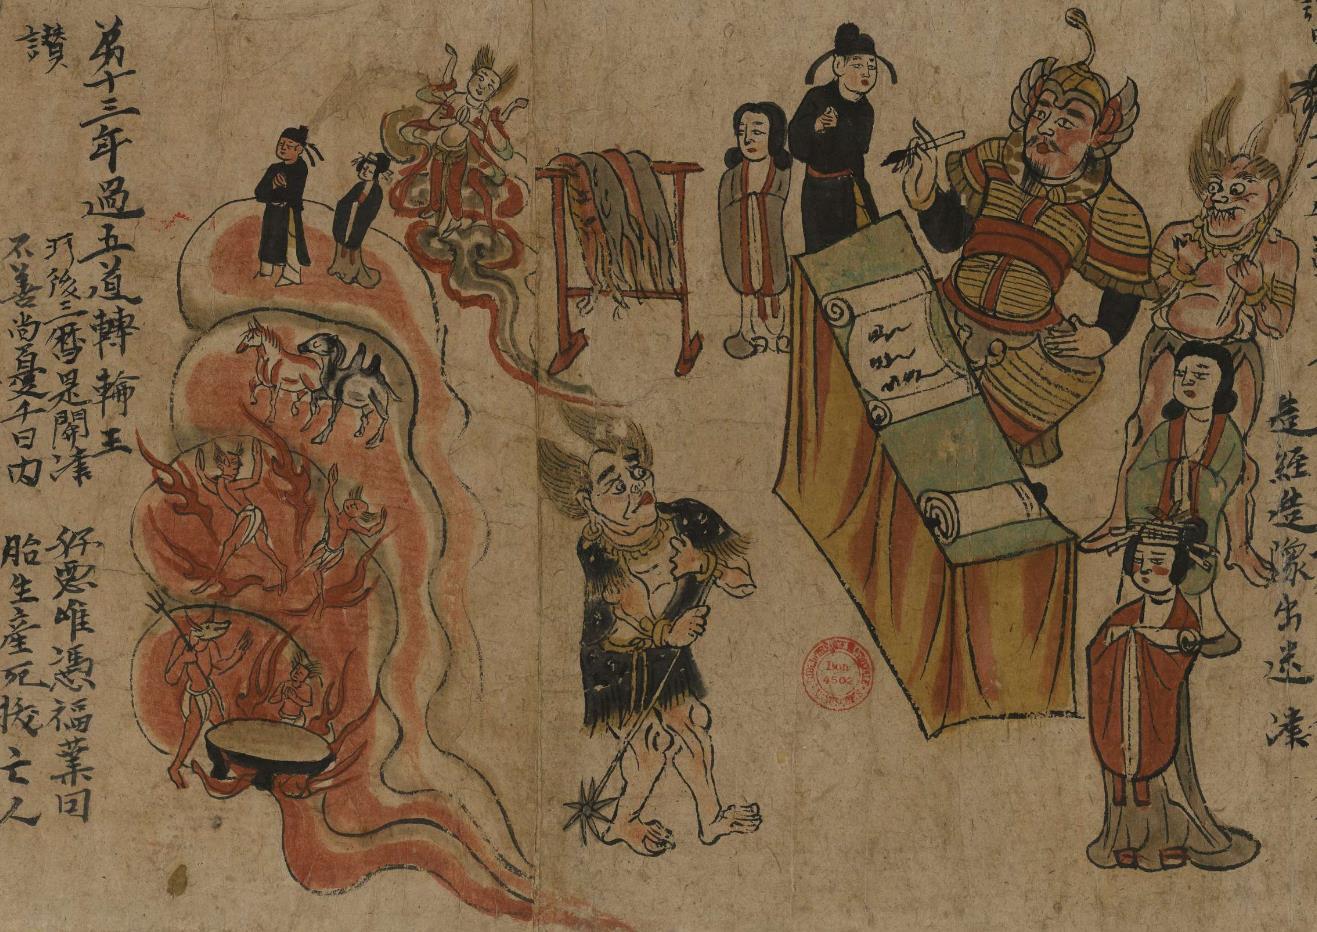 造經造像出迷津
弟十三年過五道轉輪王
讚
所後三曆是關津 好惡唯憑福業因
不善尚憂千日內 胎生產死拔亡人
Don
4502